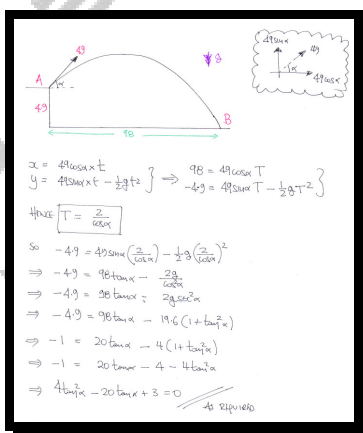 49
A
α
g
4.9
98
B
49sinα
49
α
49cosα
x = 49cosα × t
y = 49sinα × t - ½gt² } ⇒ 98 = 49cosα T
-4.9 = 49sinα T - ½gT² }
HENCE T = 2/cosα
SO -4.9 = 49sinα (2/cosα) - ½g (2/cosα)²
⇒ -4.9 = 98tanα - 2g/cos²α
⇒ -4.9 = 98tanα - 2g sec²α
⇒ -4.9 = 98tanα - 19.6(1+tan²α)
⇒ -1 = 20tanα - 4(1+tan²α)
⇒ -1 = 20tanα - 4 - 4tan²α
⇒ 4tan²α - 20tanα + 3 = 0
AS REQUIRED